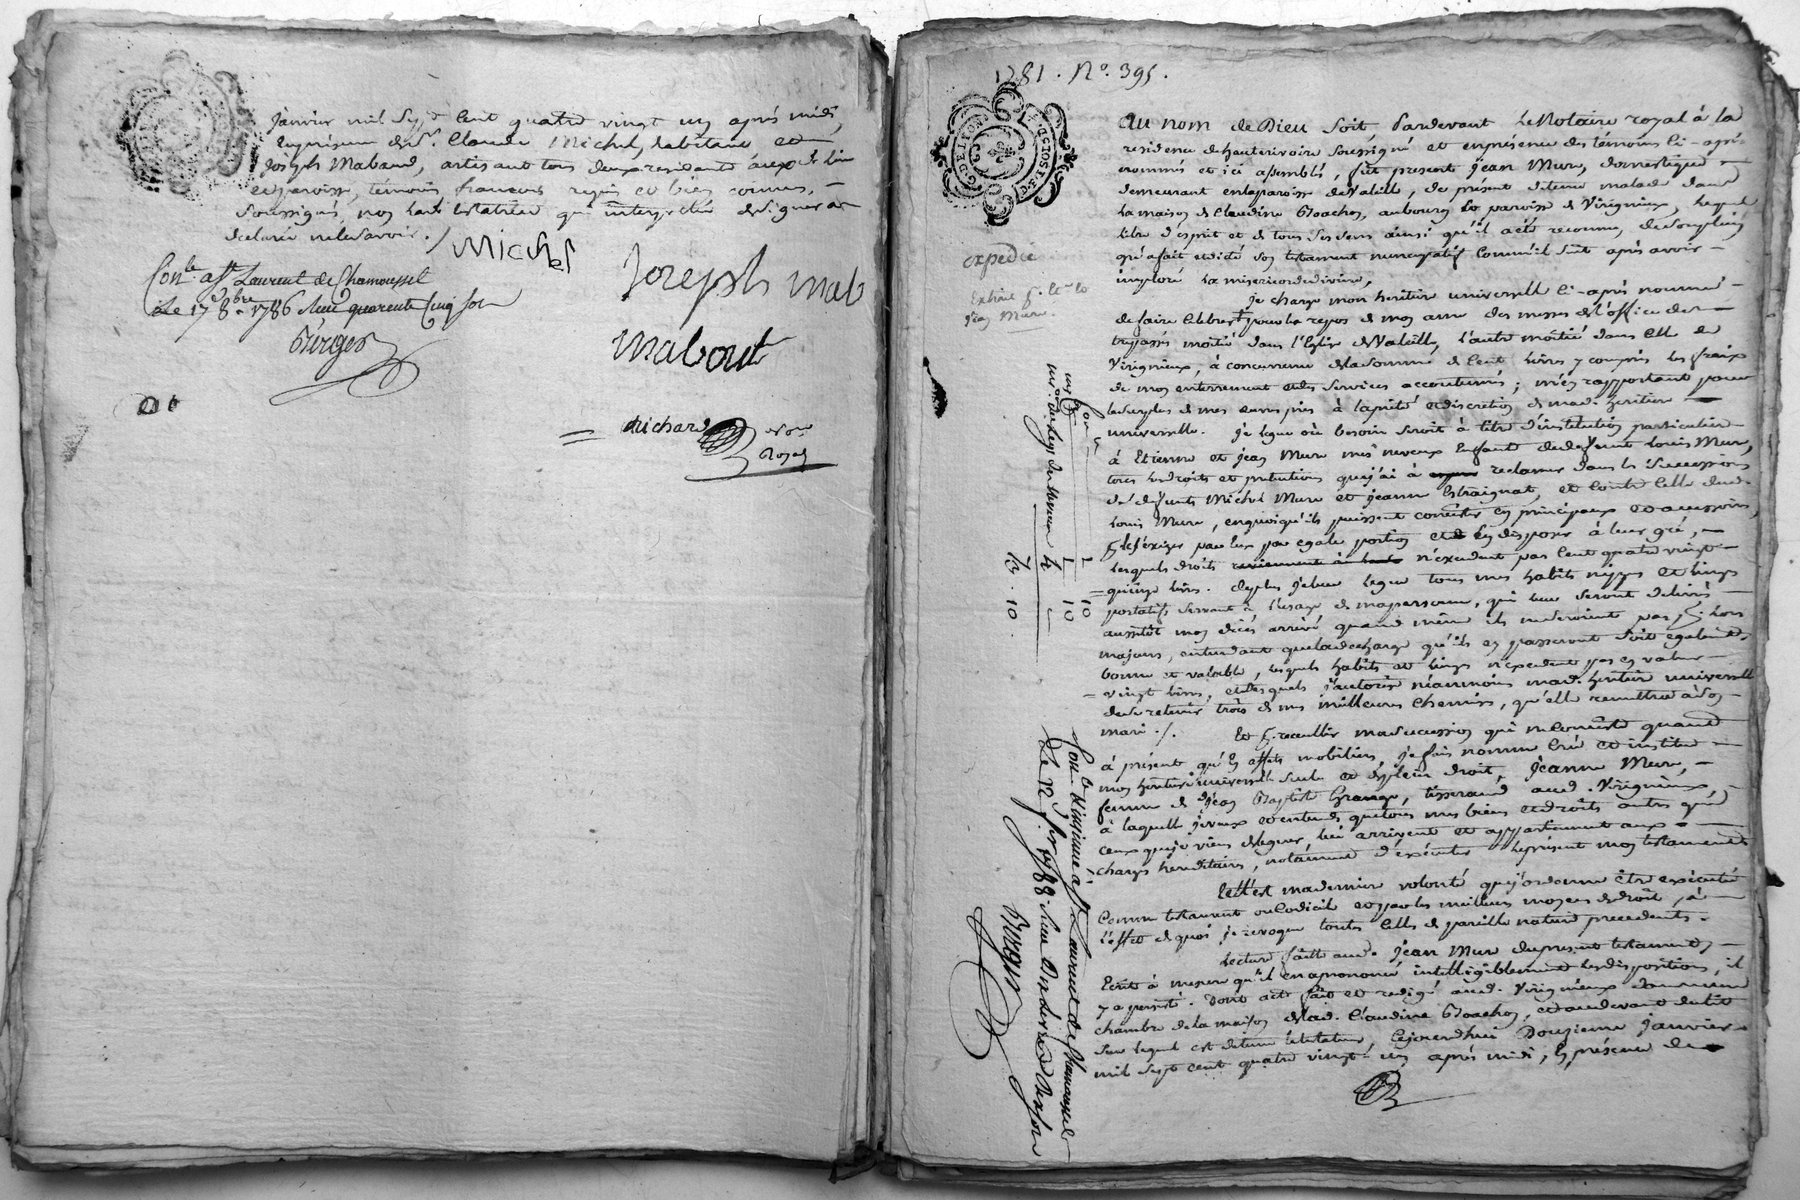 Janvier mil sept cent quatre vingt un après midi,
En présence de Sr. Claude Michel, habitant et
Joseph Mabaud, artisant tous deux residents aud. lieu
et paroisse, temoins francois requis et bien connus, —
soussignés, non lad. testatrice qui interpellée de signer a
declaré ne le savoir ./
Michel
Joseph mab
mabout
Conlé. a St. Laurent de Chamousset
Le 17 8bre 1786 Reçu quarente Cinq sols
Berger
Richard nore
Royal
1781. No. 395.
G. DE LYON
expedié
Jean Mure
Au nom de Dieu soit Pardevant Le Notaire royal à la
residence de hauterivoire soussigné et en présence des témoins ci-après
nommés et ici assemblés, fut present Jean Mure, domestique
demeurant en la paroisse de Valeille, de present detenu malade dans
la maison de Claudine au bourg et paroisse de Virigneux, lequel
libre d'esprit et de tous ses sens ainsi qu'il a été reconnu, de son plein
gré a fait et dicté son testament nuncupatif comme il suit après avoir —
imploré la misericorde divine.
Je charge mon heritier universelle ci-après nommé —
de faire celebrer pour le repos de mon ame des messes de l'office des —
trepassés moitié dans l'Eglise de Valeille, l'autre moitié dans celle de
Virigneux, à concurrence de la somme de Cent livres y compris les fraix
de mon enterrement et des services accoutumés ; m'en rapportant pour
le surplus de mes œuvres pies à la pieté et discretion de mad. heritiere —
universelle. Je legue où besoin seroit à titre d'institution particuliere
à Etienne et Jean Mure mes neveux Enfant de deffunt Louis Mure,
tous les droits et pretentions que j'ai à reclamer dans les Successions
de deffunts Michel Mure et Jeanne Estraignat, et Contre Celle dud.
Louis Mure, en quoi qu'ils puissent consister en principaux et accessoires,
pr. les exiger par eux par egale portion et en disposer à leur gré, —
lesquels droits n'excedent pas Cent quatre vingt —
quinze livres. De plus je leur legue tous mes habits nippes et linges
portatifs servant à l'usage de ma personne, qui leur seront delivrés —
aussitôt mon décès arrivé quand même ils ne seroient pas pr. lors
majeurs, entendant que la decharge qu'ils en passeront soit egalement
bonne et valable, lesquels habits et linges n'excedent pas en valeur —
vingt livres, et desquels j'autorise néanmoins mad. heritiere universelle
de se retenir trois de mes meilleures chemises, qu'elle remettra à son —
mari ./. Et pr. recueillir ma succession qui ne consiste quand
à present qu'en effets mobiliers, je fais nomme Crée et institue —
mon heritiere universelle seule et de plein droit, Jeanne Mure, —
femme de Jean Baptiste Grange, tisserand aud. Virigneux, —
à laquelle je veux et entends que tous mes biens et droits autres que
ceux que je viens de leguer, lui arrivent et appartiennent aux —
charges hereditaires, notamment d'executer le present mon testament
telle est ma derniere volonté que j'ordonne être executée
comme testament ou Codicile et par les meilleurs moyens de droit, à —
l'effet de quoi je revoque toutes celles de pareille nature precedentes.
Lecture faitte aud. Jean Mure du present testament —
Ecrit à mesure qu'il en a prononcé intelligiblement les dispositions, il
y a persisté. Dont acte fait et redigé aud. Virigneux dans une
chambre de la maison de lad. Claudine et au devant du lit
sur lequel est detenu le testateur, Cejourdhui Douzieme janvier
mil sept cent quatre vingt-un, après midi, En présence de
Conlé. a St Laurent de Chamousset
Le 12
1788. Reçu
Berger